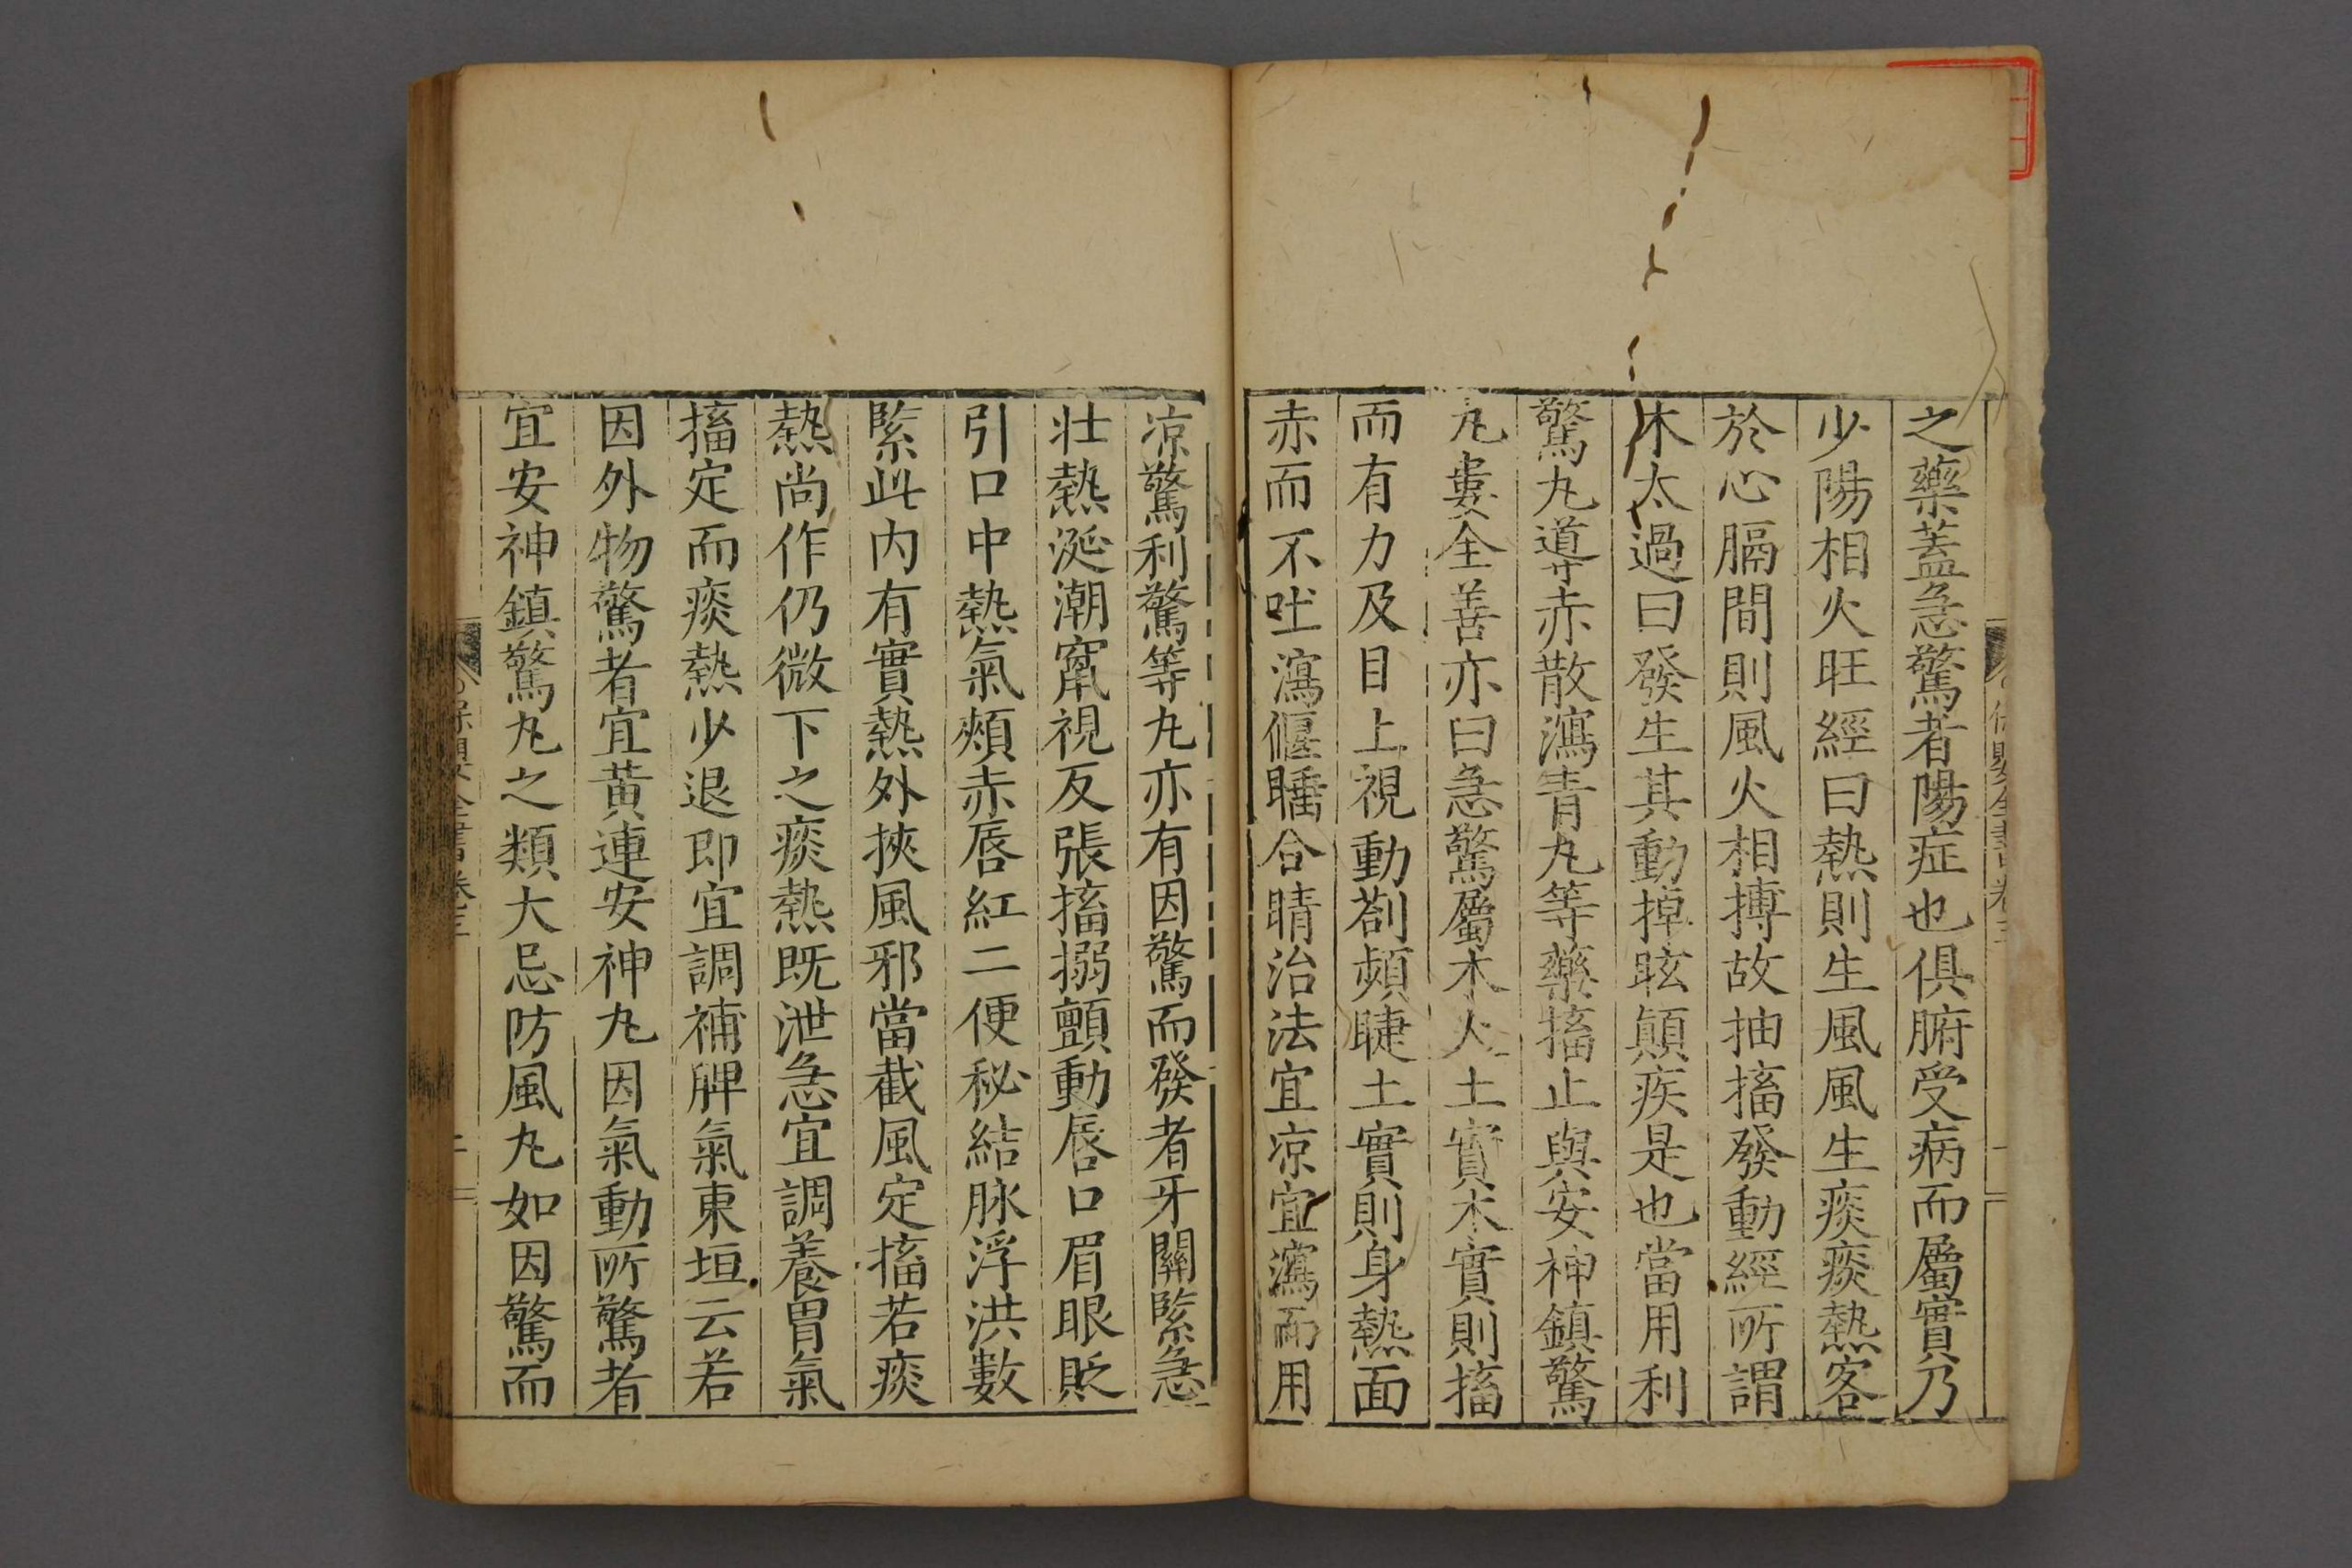 之藥蓋急驚者陽症也俱腑受病而屬實乃
少陽相火旺經曰熱則生風風生痰痰熱客
於心膈間則風火相搏故抽搐發動經所謂
木太過曰發生其動掉眩顛疾是也當用利
驚丸導赤散瀉青丸等藥搐止與安神鎮驚
丸婁全善亦曰急驚屬木火土實木實則搐
而有力及目上視動劄頻睫土實則身熱面
赤而不吐瀉偃睡合睛治法宜凉宜瀉而用
凉驚利驚等丸亦有因驚而發者牙關緊急
壯熱涎潮竄視反張搐搦顫動唇口眉眼眨
引口中熱氣頰赤唇紅二便秘結脉浮洪數
緊此内有實熱外挾風邪當截風定搐若痰
熱尚作仍微下之痰熱既泄急宜調養胃氣
搐定而痰熱少退即宜調補脾氣東垣云若
因外物驚者宜黄連安神丸因氣動所驚者
宜安神鎮驚丸之類大忌防風丸如因驚而